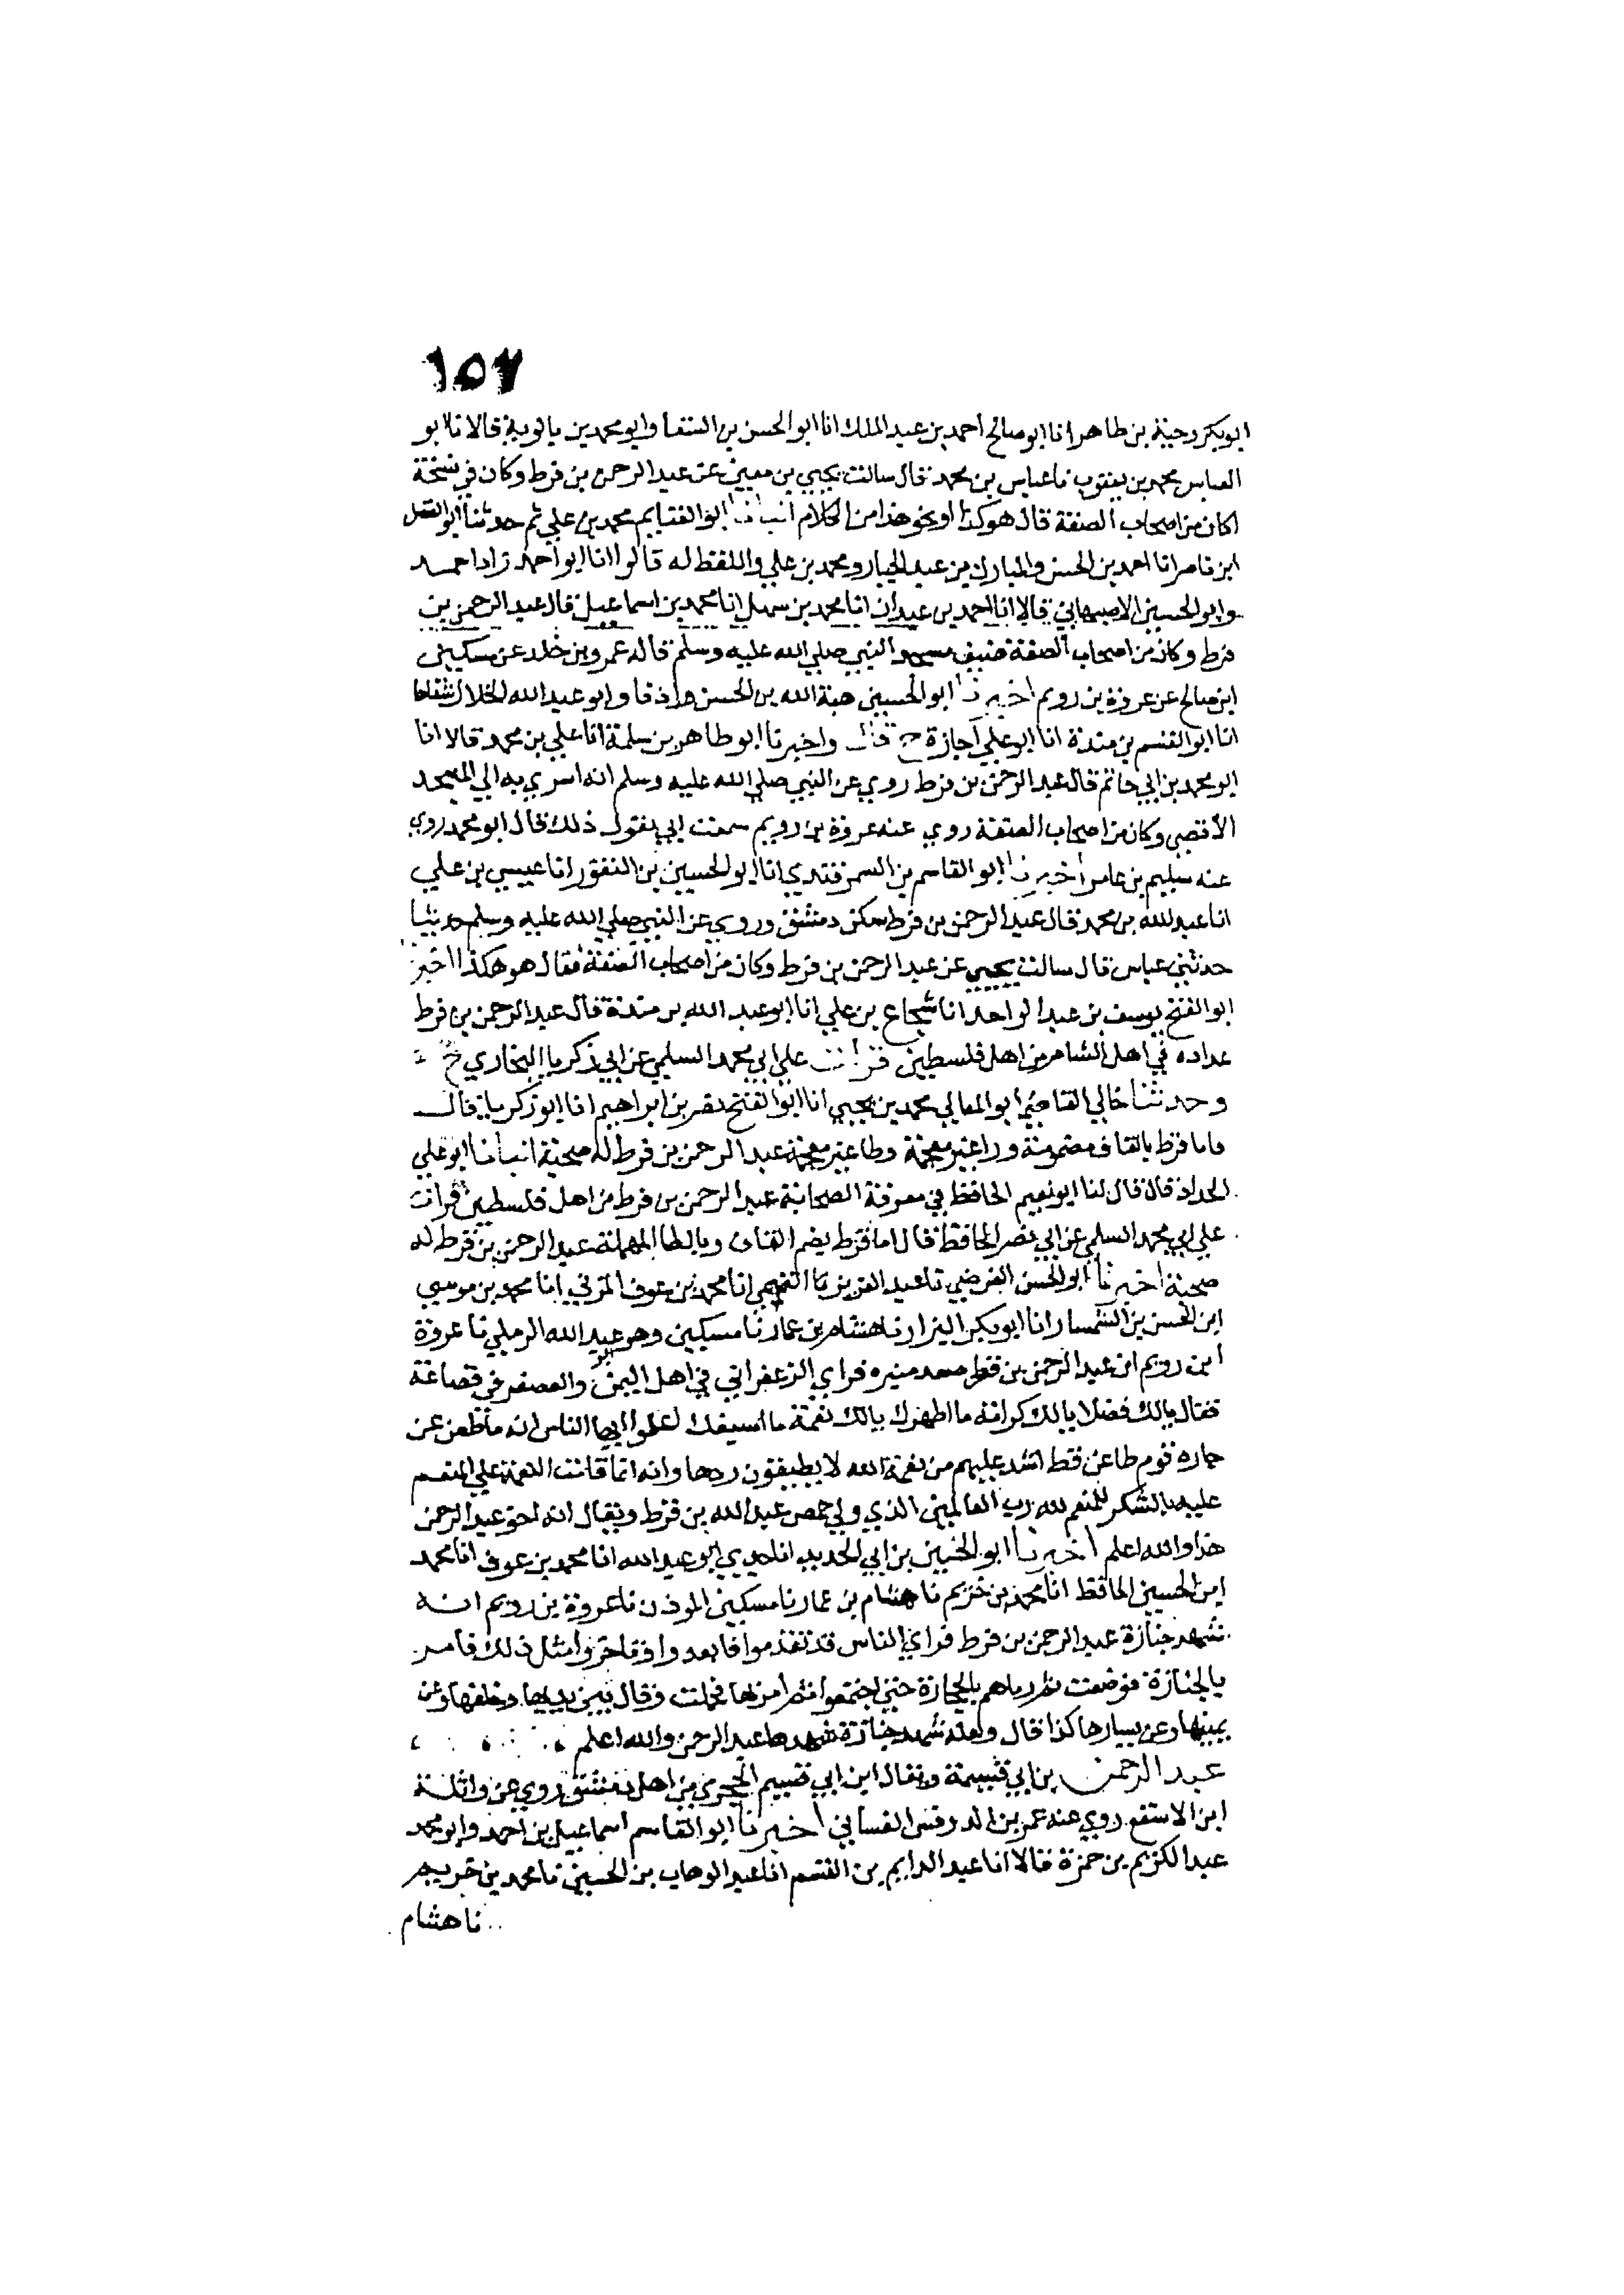 ١٥٧
ابو بكر وجيه بن طاهر انا ابو صالح احمد بن عبد الملك انا ابو الحسن بن السقا وابو محمد بن بالويه قالا نا ابو
العباس محمد بن يعقوب نا عباس بن محمد قال سالت يحيى بن معين عن عبد الرحمن بن قرط وكان في نسخة
اكان من اصحاب الصفة قال هو كذا او نحو هذا من الكلام انبانا ابو الغنايم محمد بن علي ثم حدثنا ابو الفضل
ابن ناصر انا احمد بن الحسن والمبارك بن عبد الجبار ومحمد بن علي واللفظ له قالوا انا ابو احمد زاد احمد
وابو الحسين الاصبهاني قالا انا احمد بن عبدان انا محمد بن سهل انا محمد بن اسماعيل قال عبد الرحمن بن
قرط وكان من اصحاب الصفة مسجد النبي صلي الله عليه وسلم قاله عمرو بن خلد عن مسكين
ابن صالح عن عروة بن رويم اخبرنا ابو الحسين هبة الله بن الحسن اذنا وابو عبد الله الخلال شفاها
انا ابو القسم بن مندة انا ابو علي اجازة ح قال واخبرنا ابو طاهر بن سلمة انا علي بن محمد قالا انا
ابو محمد بن ابي حاتم قال عبد الرحمن بن قرط روي عن النبي صلي الله عليه وسلم انه اسري به الي المسجد
الاقصي وكان من اصحاب الصفة روي عنه عروة بن رويم سمعت ابي يقول ذلك قال ابو محمد روي
عنه سليم بن عامر اخبرنا ابو القاسم بن السمرقندي انا ابو الحسين بن النقور انا عيسي بن علي
انا عبد الله بن محمد قال عبد الرحمن بن قرط سكن دمشق وروي عن النبي صلي الله عليه وسلم حديثا
حدثني عباس قال سالت يحيي عن عبد الرحمن بن قرط وكان من اصحاب الصفة فقال هو هكذا اخبرنا
ابو الفتح يوسف بن عبد الواحد انا شجاع بن علي انا ابو عبد الله بن مندة قال عبد الرحمن بن قرط
عداده في اهل الشام من اهل فلسطين قرات علي ابي محمد السلمي عن ابي زكريا البخاري ح
وحدثنا خالي القاضي ابو المعالي محمد بن يحيي انا ابو الفتح نصر بن ابراهيم انا ابو زكريا قال
واما قرط بالقاف مضمومة ورا غير معجمة وطا غير معجمة عبد الرحمن بن قرط له صحبة انبانا ابو علي
الحداد قال قال لنا ابو نعيم الحافظ في معرفة الصحابة عبد الرحمن بن قرط من اهل فلسطين قرات
علي ابي محمد السلمي عن ابي نصر الحافظ قال اما قرط بضم القاف وبالطا المهملة عبد الرحمن بن قرط له
صحبة اخبرنا ابو الحسن الفرضي نا عبد العزيز نا التميمي انا محمد بن عوف المزني انا محمد بن موسي
ابن الحسن بن السمسار انا ابو بكر البزار نا هشام بن عمار نا مسكين وهو عبد الله الرملي نا عروة
ابن رويم ان عبد الرحمن بن قرط صعد منبره فراي الزعفراني في اهل اليمن والمعصفر في قضاعة
فقال يا لك فضلا يا لك كرامة ما اظهرك يا لك نعمة ما اسبغك اعلموا ايها الناس انه ما ظعن عن
جاره قوم ظاعن قط اشد عليهم من نعمة الله لا يطيقون ردها وانه انما قامت النعمة علي المنعم
عليه بالشكر للمنعم لله رب العالمين الذي ولي حمص عبد الله بن قرط ويقال انه اخو عبد الرحمن
هذا والله اعلم اخبرنا ابو الحسين بن ابي الحديد انا جدي ابو عبد الله انا محمد بن عوف انا محمد
ابن الحسين الحافظ انا محمد بن خريم نا هشام بن عمار نا مسكين الموذن نا عروة بن رويم انه
شهد جنازة عبد الرحمن بن قرط فراي الناس قد تقدموا وتاخروا مثل ذلك فامر
بالجنازة فوضعت ثم رماهم بالحجارة حتي اجتمعوا ثم امر بها فحملت وقال بين يديها وخلفها وعن
يمينها وعن يسارها كذا قال ولعله شهد جنازة شهدها عبد الرحمن والله اعلم
عبد الرحمن بن ابي قسيمة ويقال ابن ابي قسيم الحجري من اهل دمشق روي عن واثلة
ابن الاسقع روي عنه عمر بن الدرفس الغساني اخبرنا ابو القاسم اسماعيل بن احمد وابو محمد
عبد الكريم بن حمزة قالا انا عبد الدايم بن القسم انا عبد الوهاب بن الحسين نا محمد بن خريم
نا هشام